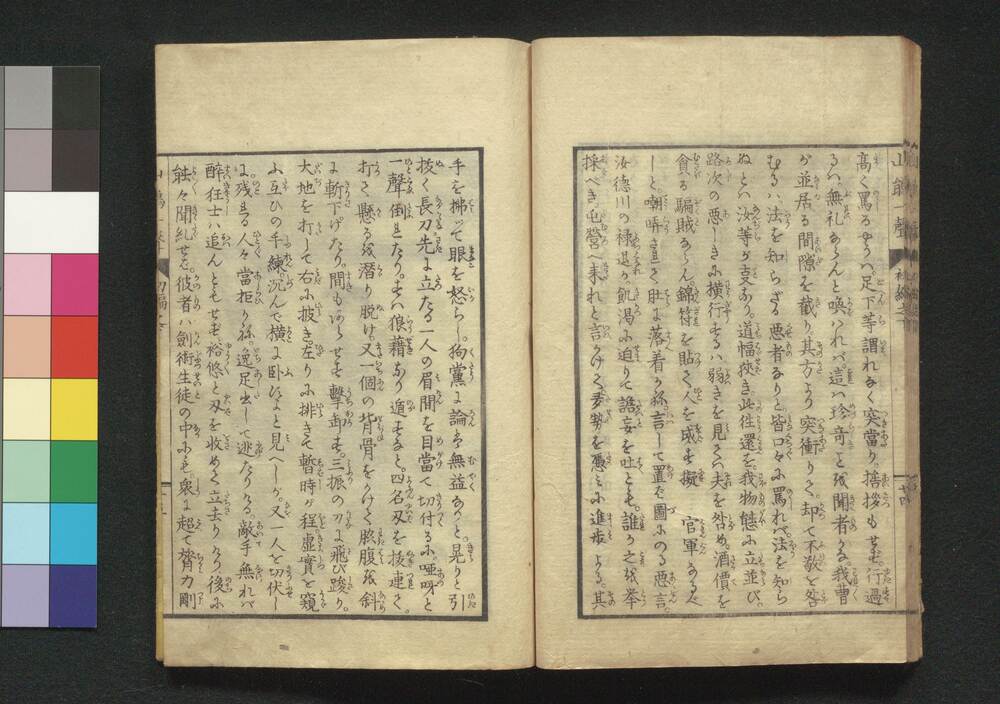 高く罵るやうハ足下等謂れなく突當り。挨拶もせず。行過
るハ無礼ならんと喚ハれバ。這ハ珍奇ことを聞者かな。我曹
が並居る間隙を截り。其方より突衝りて。却て不敬を咎
むるハ法を知らざる悪者なりと皆口々に罵れバ。法を知ら
ぬとハ汝等が事なり。道幅狭き此往還を。我物態に立並び。
路次の悪しきに横行するハ弱きを見こみ夫を咎め。酒價を
貪る騙賊ならん。錦符を貼て人を威す擬 官軍なるべ
しと。嘲哢まじく肚に落着かね言して置ば圖にのる悪言。
汝德川の禄退れ飢渇に迫りて譫妄を吐とも。誰か之を挙
採べき。屯營へ来れと言かけて多勢を憑みに進歩よる。其
手を拂つて眼を怒らし。狗黨に論ハ無益なりと。晃りと引
抜く長刀先に立たる一人の眉間を目當て切付るに。唖呀と
一聲倒れたり。すハ狼藉なり遁すなと。四名刃を抜連て。
打て懸るを潜り脱け。又一個の背骨をかけて脇腹を斜
に斬下げたり。間もあらせず撃直す。三振の刀に飛び踆り。
大地を打して右に披き。左りに排きて暫時が程虚實を窺
ふ互ひの手練。沉んで横に臥すよと見へしが。又一人を切伏し
に。残れる人々當拒りかね。逸足出して逃たりける。敵手無れバ
醉狂士ハ追んともせず。裕悠と刃を收めて立去りける後に
能々聞糺せバ。彼者ハ劍術生徒の中にも。衆に超て膂力剛